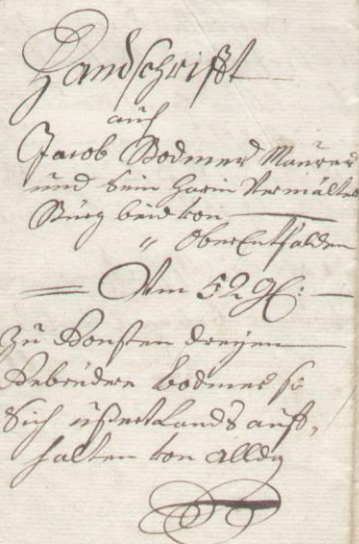 Handschrifft
auf
Jacob Bodmer Maurer
und sein harin Vermälter
Bürg beid von
" OberEntfalden
Um 52 gl:
Zu Gonsten dreyen
Gebrüdere Bodmer so
Sich ußert Lands auff-
halten von